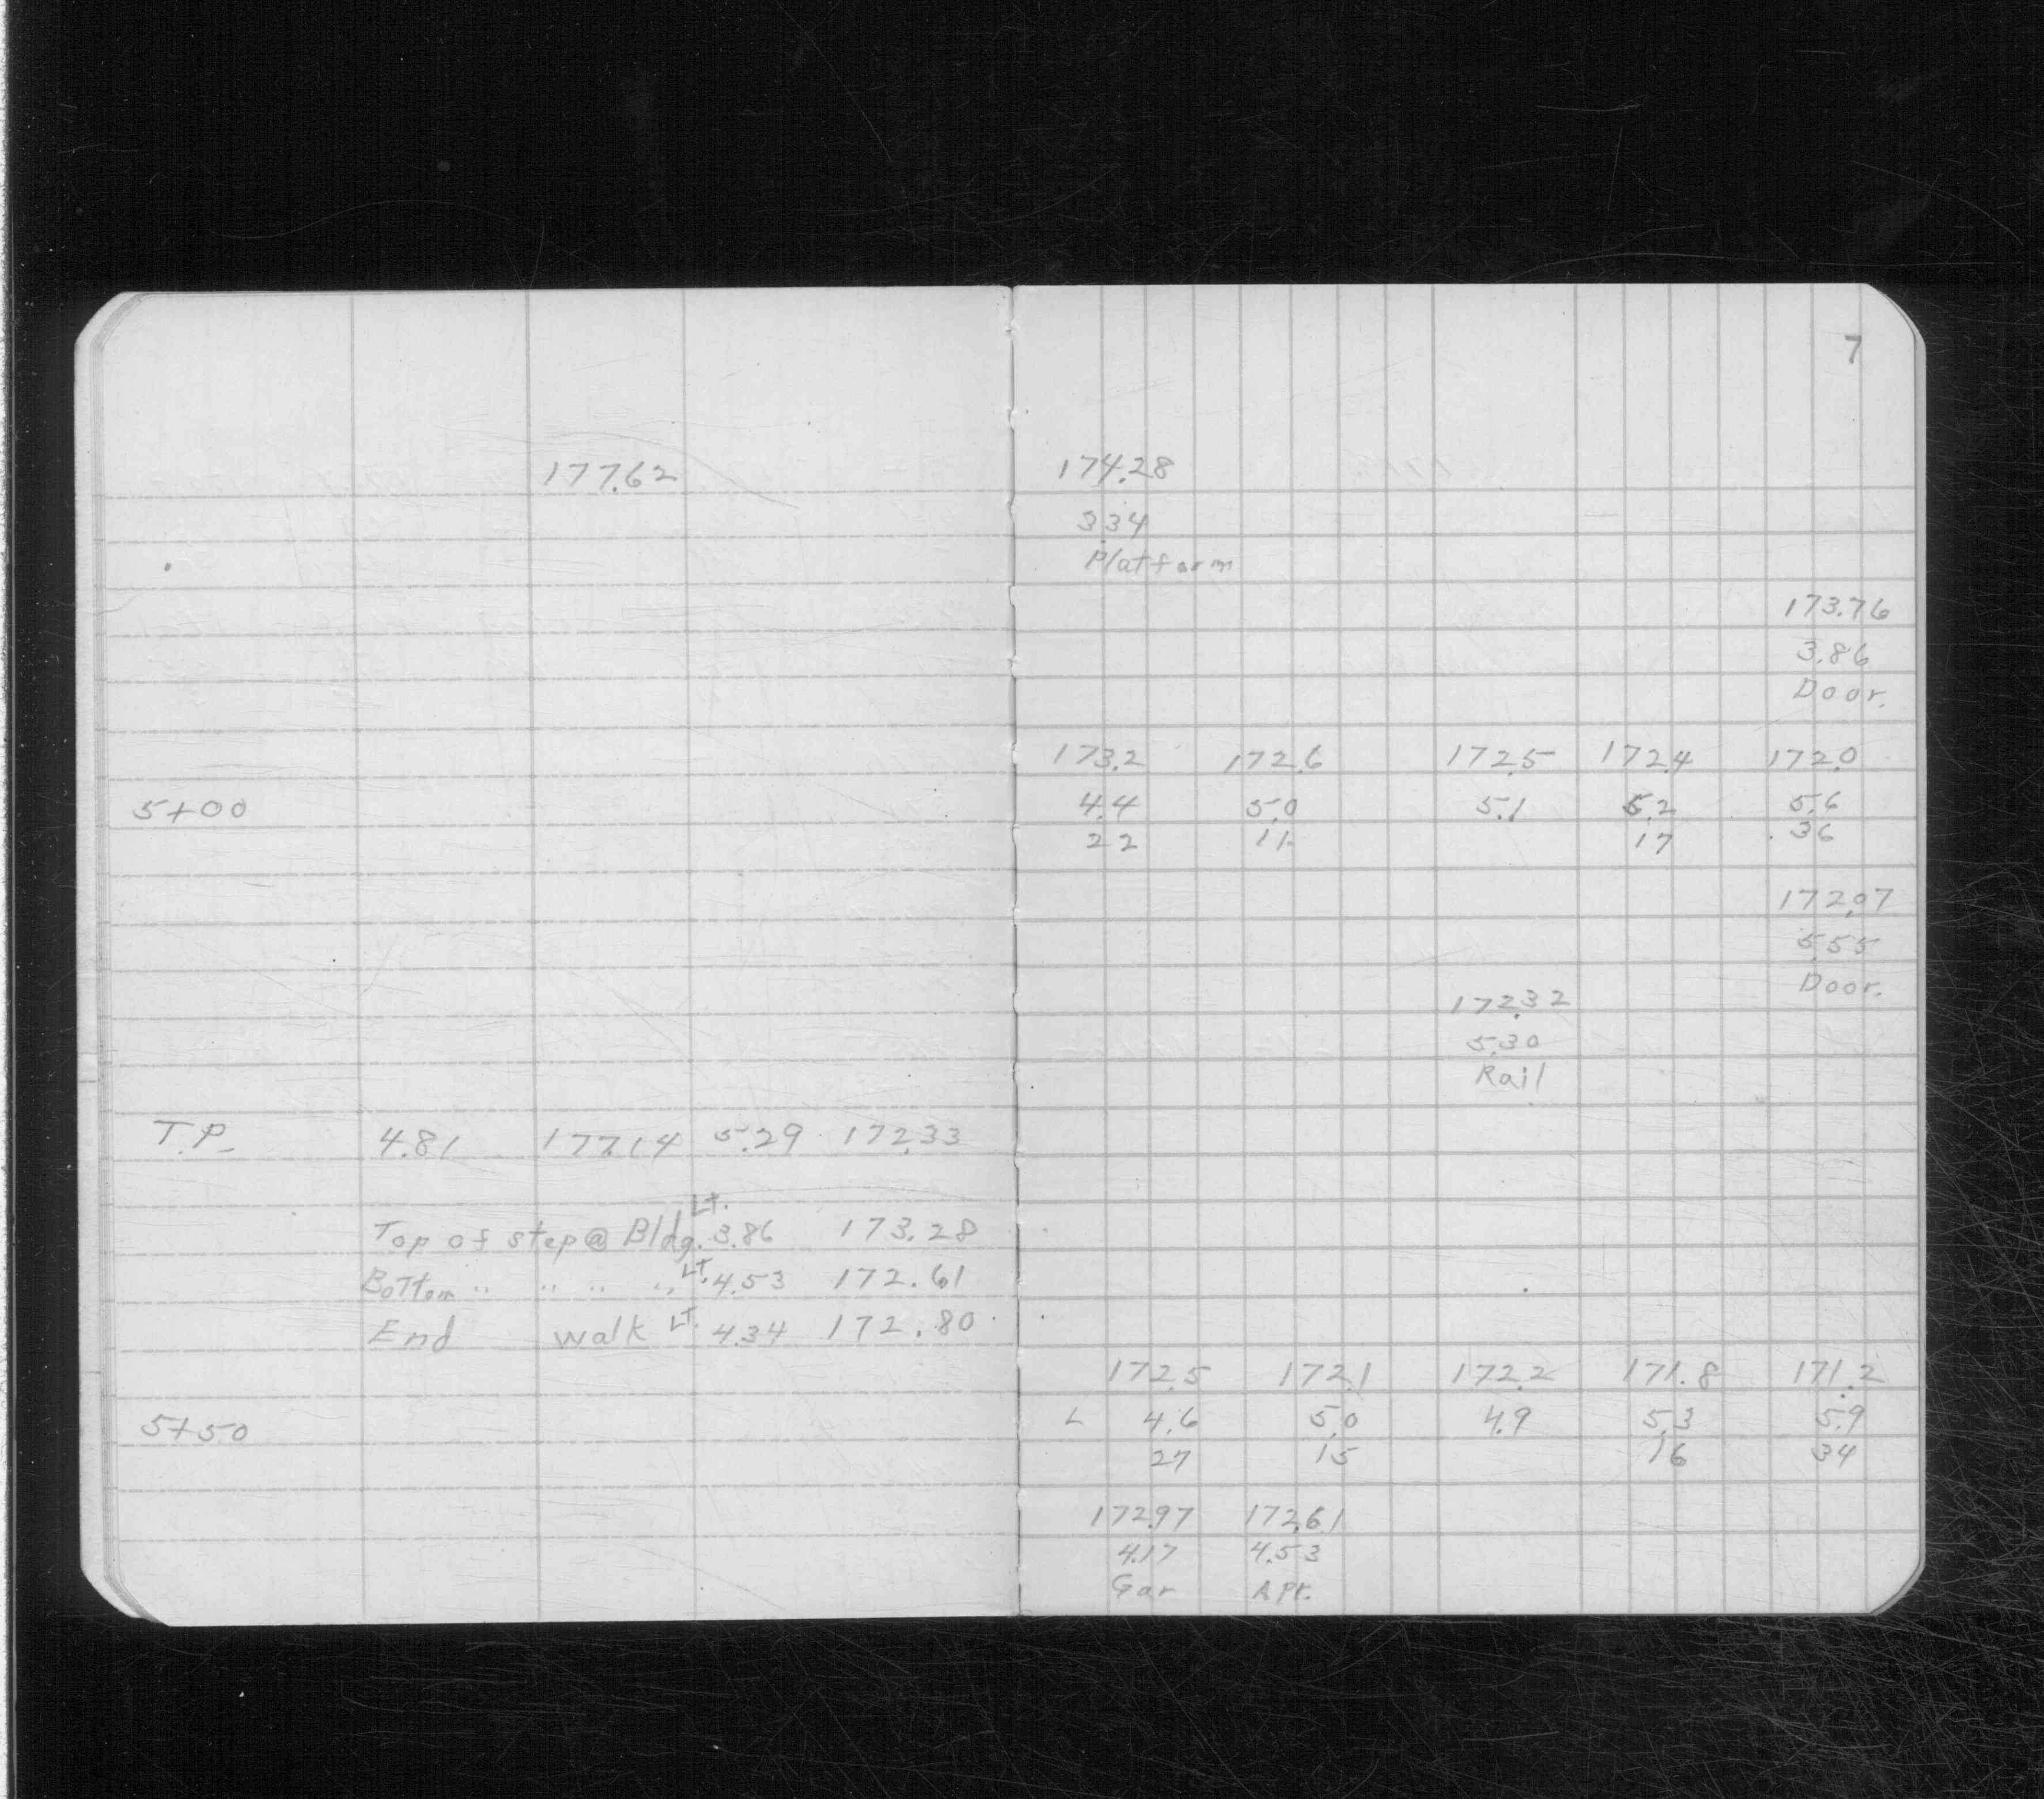 7
177.62 174.28
3.34
Platform
173.76
3.86
Door.
173.2 172.6 172.5 172.4 172.0
5+00 4.4 5.0 5.1 5.2 5.6
22 11 17 36
172.07
5.55
Door.
172.32
5.30
Rail
T.P. 4.81 177.14 5.29 172.33
Top of step @ Bldg. LT. 3.86 173.28
Bottom " " " " LT. 4.53 172.61
End walk LT. 4.34 172.80
172.5 172.1 172.2 171.8 171.2
5+50 L 4.6 5.0 4.9 5.3 5.9
27 15 16 34
172.97 172.61
4.17 4.53
Gar APt.